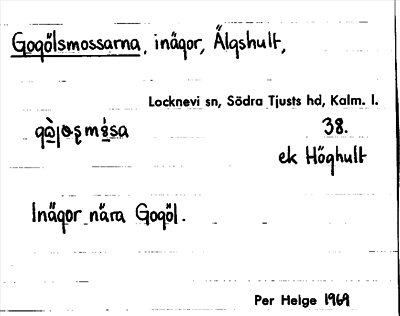 Gogölsmossarna, inägor, Älgshult,
Locknevi sn, Södra Tjusts hd, Kalm. l.
38.
ek Höghult
Inägor nära Gogöl.
Per Helge 1969